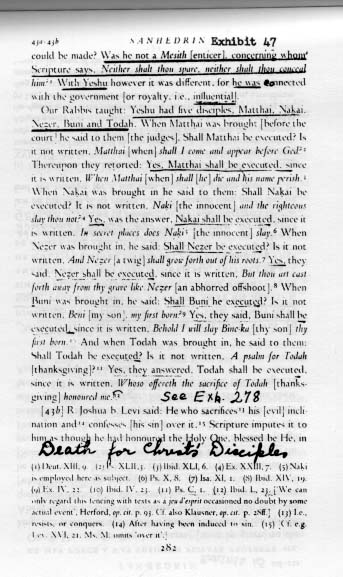 43a-43b SANHEDRIN Exhibit 47
could be made? Was he not a Mesith [enticer], concerning whom
Scripture says, Neither shalt thou spare, neither shalt thou conceal
him? With Yeshu however it was different, for he was connected
with the government [or royalty, i.e., influential].
Our Rabbis taught: Yeshu had five disciples, Matthai, Nakai,
Nezer, Buni and Todah. When Matthai was brought [before the
court] he said to them [the judges], Shall Matthai be executed? Is
it not written, Matthai [when] shall I come and appear before God?
Thereupon they retorted: Yes, Matthai shall be executed, since
it is written, When Matthai [when] shall [he] die and his name perish.
When Nakai was brought in he said to them: Shall Nakai be
executed? It is not written, Naki [the innocent] and the righteous
slay thou not? Yes, was the answer, Nakai shall be executed, since it
is written, In secret places does Naki [the innocent] slay. When
Nezer was brought in, he said: Shall Nezer be executed? Is it not
written, And Nezer [a twig] shall grow forth out of his roots. Yes, they
said, Nezer shall be executed, since it is written, But thou art cast
forth away from thy grave like Nezer [an abhorred offshoot]. When
Buni was brought in, he said: Shall Buni be executed? Is it not
written, Beni [my son], my first born? Yes, they said, Buni shall be
executed, since it is written, Behold I will slay Bine-ka [thy son] thy
first born. And when Todah was brought in, he said to them:
Shall Todah be executed? Is it not written, A psalm for Todah
[thanksgiving]? Yes, they answered, Todah shall be executed,
since it is written, Whoso offereth the sacrifice of Todah [thanks-
giving] honoured me.
See Exh. 278
[43b] R. Joshua b. Levi said: He who sacrifices his [evil] incli-
nation and confesses [his sin] over it, Scripture imputes it to
him as though he had honoured the Holy One, blessed be He, in
Death for Christs' Disciples
(1) Deut. XIII, 9. (2) XLII, 3. (3) Ibid. XLI, 6. (4) Ex. XXIII, 7. (5) Naki
is employed here as subject. (6) Ps. X, 8. (7) Isa. XI, 1. (8) Ibid. XIV, 19.
(9) Ex. IV, 22. (10) Ibid. IV, 23. (11) Ps. C, 1. (12) Ibid. L, 23. [We can
only regard this fencing with texts as a jeu d'esprit occasioned no doubt by some
actual event', Herford, op. cit. p. 93. Cf. also Klausner, op. cit. p. 28ff.] (13) I.e.,
resists, or conquers. (14) After having been induced to sin. (15) Cf. e.g.
Lev. XVI, 21. Ms. M. omits 'over it'.
282